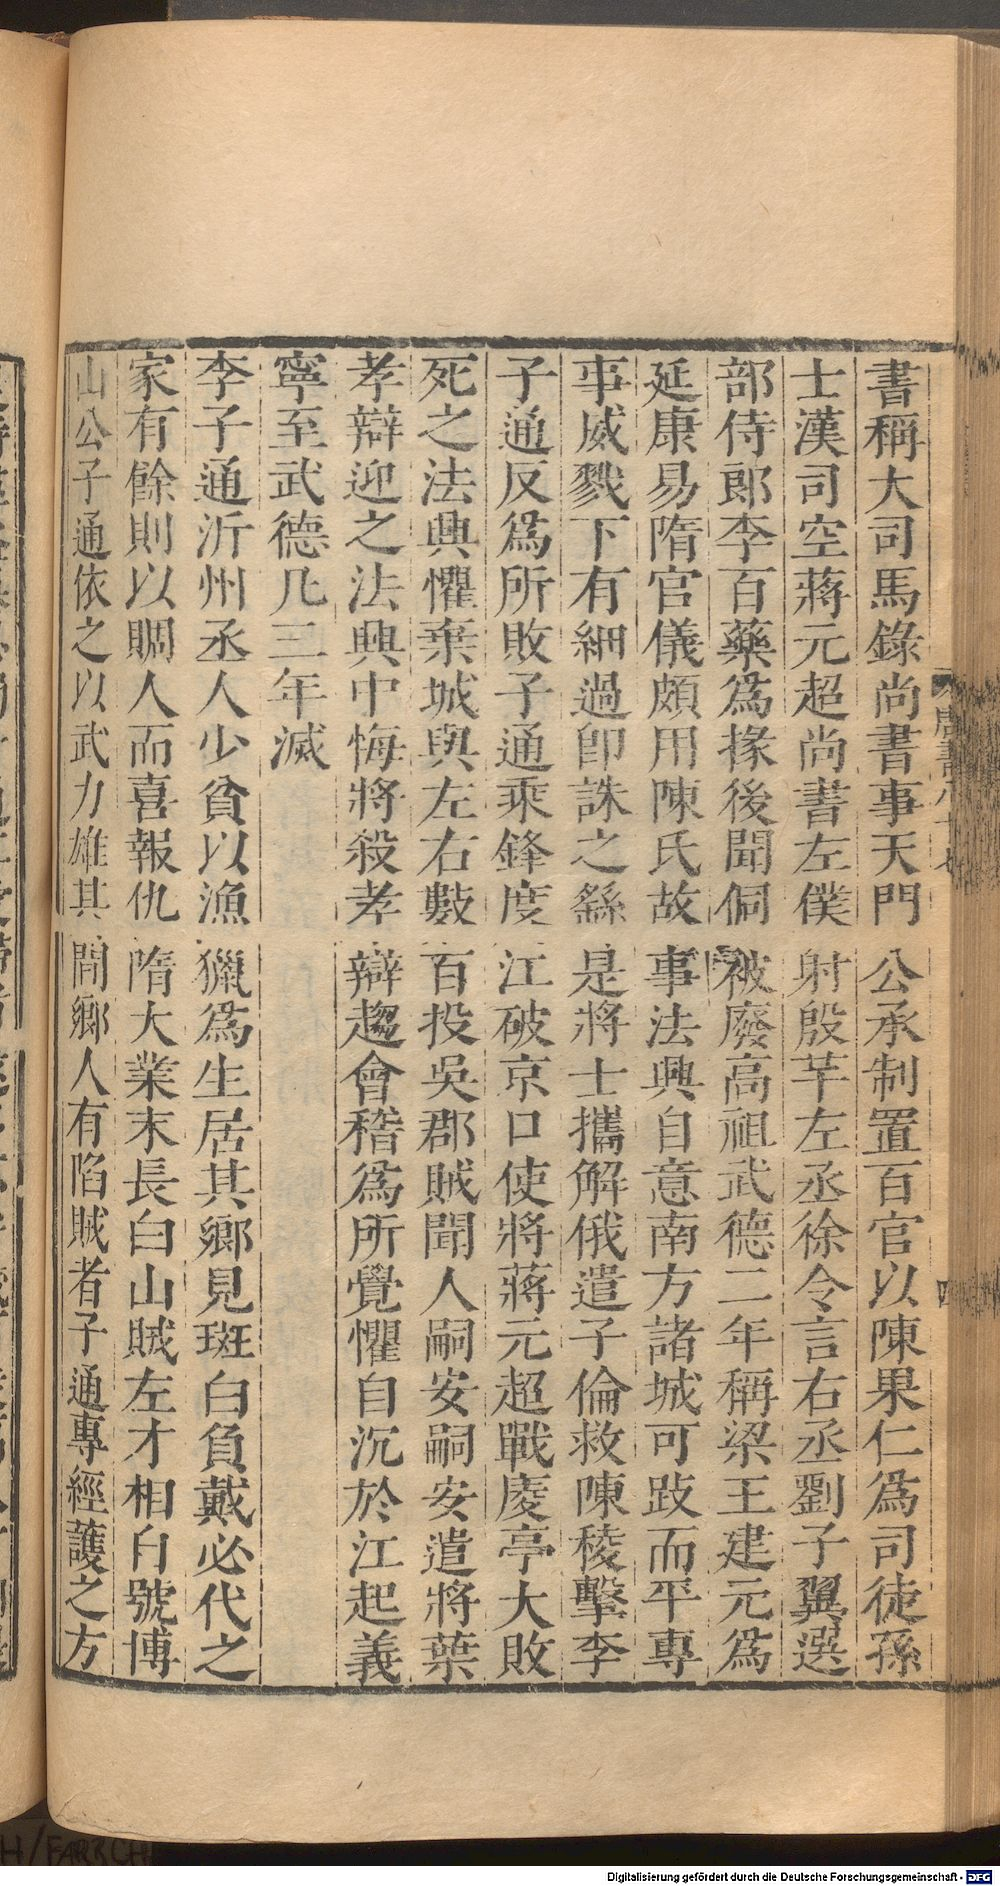 書稱大司馬錄尚書事天門公承制置百官以陳果仁爲司徒孫
士漢司空蔣元超尚書左僕射殷芊左丞徐令言右丞劉子翼選
部侍郎李百藥爲掾後聞侗被廢高祖武德二年稱梁王建元爲
延康易隋官儀頗用陳氏故事法興自意南方諸城可跂而平專
事威戮下有細過卽誅之繇是將士攜解俄遣子倫救陳稜擊李
子通反爲所敗子通乘鋒度江破京口使將蔣元超戰庱亭大敗
死之法興懼棄城與左右數百投吳郡賊聞人嗣安嗣安遣將葉
孝辯迎之法興中悔將殺孝辯趨會稽爲所覺懼自沉於江起義
寧至武德凡三年滅
李子通沂州丞人少貧以漁獵爲生居其鄉見班白負戴必代之
家有餘則以賙人而喜報仇隋大業末長白山賊左才相自號博
山公子通依之以武力雄其間鄉人有陷賊者子通專經護之方
唐書八十七
四
Digitalisierung gefördert durch die Deutsche Forschungsgemeinschaft - DFG